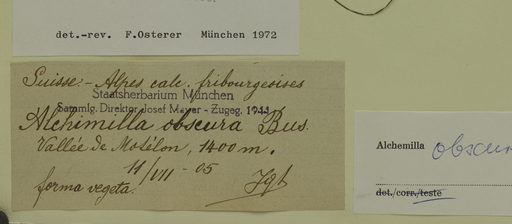 det.-rev. F.Osterer München 1972
Suisse.- Alpes calc. fribourgeoises
Staatsherbarium München
Sammlg. Direktor Josef Mayer - Zugeg. 1944
Alchimilla obscura Bus.
Vallée de Motélon, 1400 m.
11/VII - 05
forma vegeta.
Alchemilla obscur
det./corr./teste